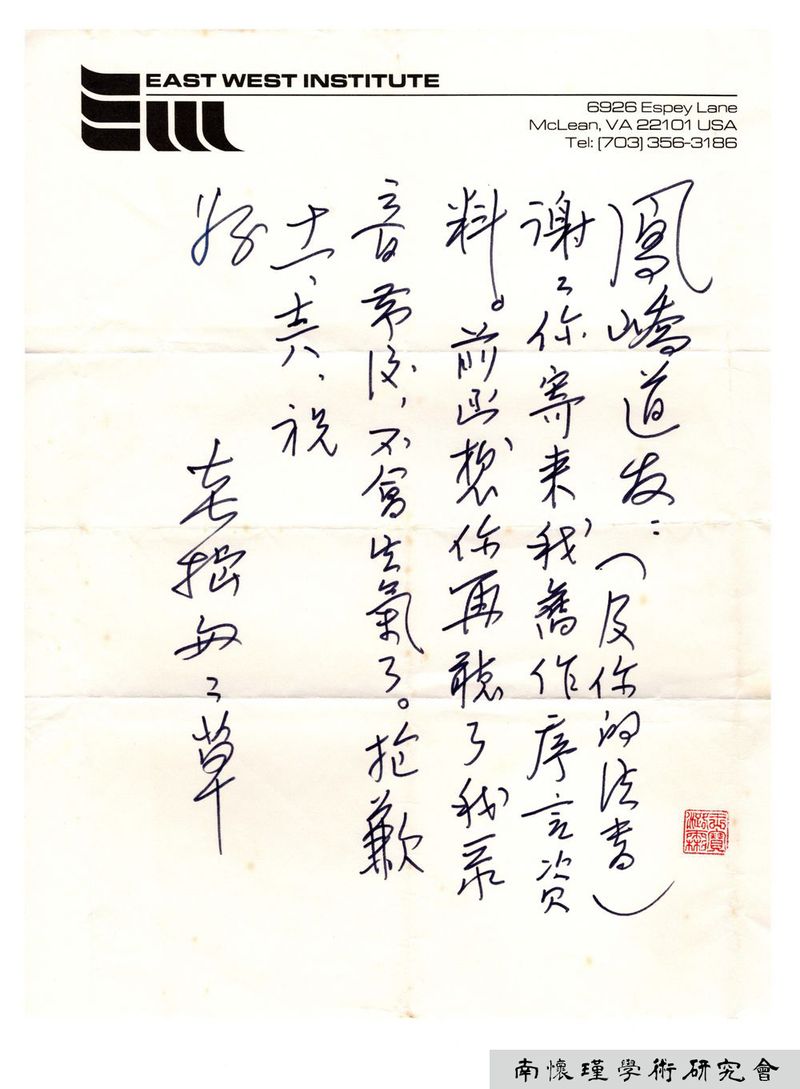 EAST WEST INSTITUTE
6926 Espey Lane
McLean, VA 22101 USA
Tel: (703) 356-3186
鳳嶠道友：（及你的法書）
謝〻你寄來我舊作序言資
料。前函想你再聽了我录
音带後，不會生氣了。抱歉
祝
好
老拙匆〻草
南懷瑾學術研究會